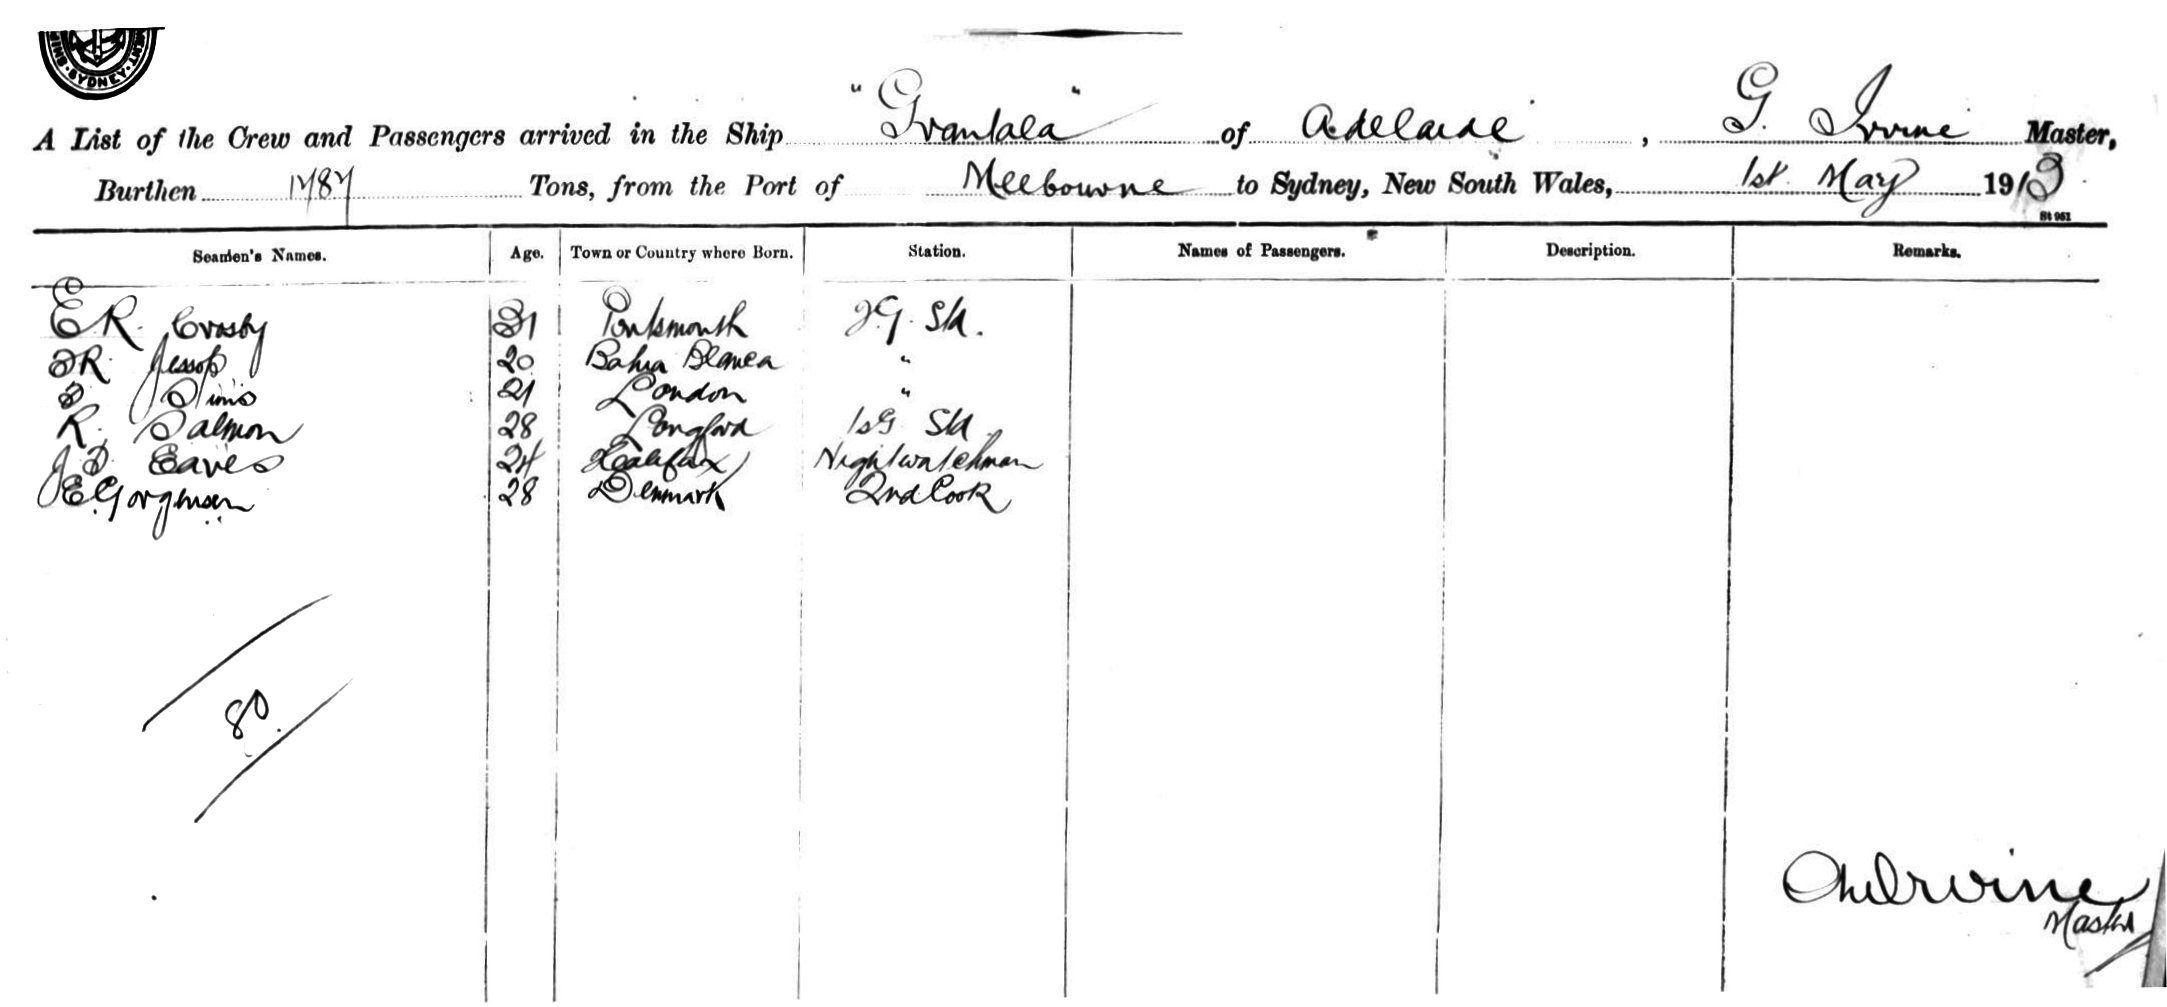 SYDNEY
A List of the Crew and Passengers arrived in the Ship "Grantala" of Adelaide, G. Irvine Master,
Burthen 1787 Tons, from the Port of Melbourne to Sydney, New South Wales, 1st May 1913
St 951
Seamen's Names. Age. Town or Country where Born. Station. Names of Passengers. Description. Remarks.
E R. Crosby 31 Portsmouth 2.G. Std.
R. Jessop 20 Bahia Blanca "
S Sims 21 London "
R. Salmon 28 Longford 1st G Std
J S. Eaves 24 Halifax Nightwatchman
J E. Gorgensen 28 Denmark 2nd Cook
80.
Irvine
Master